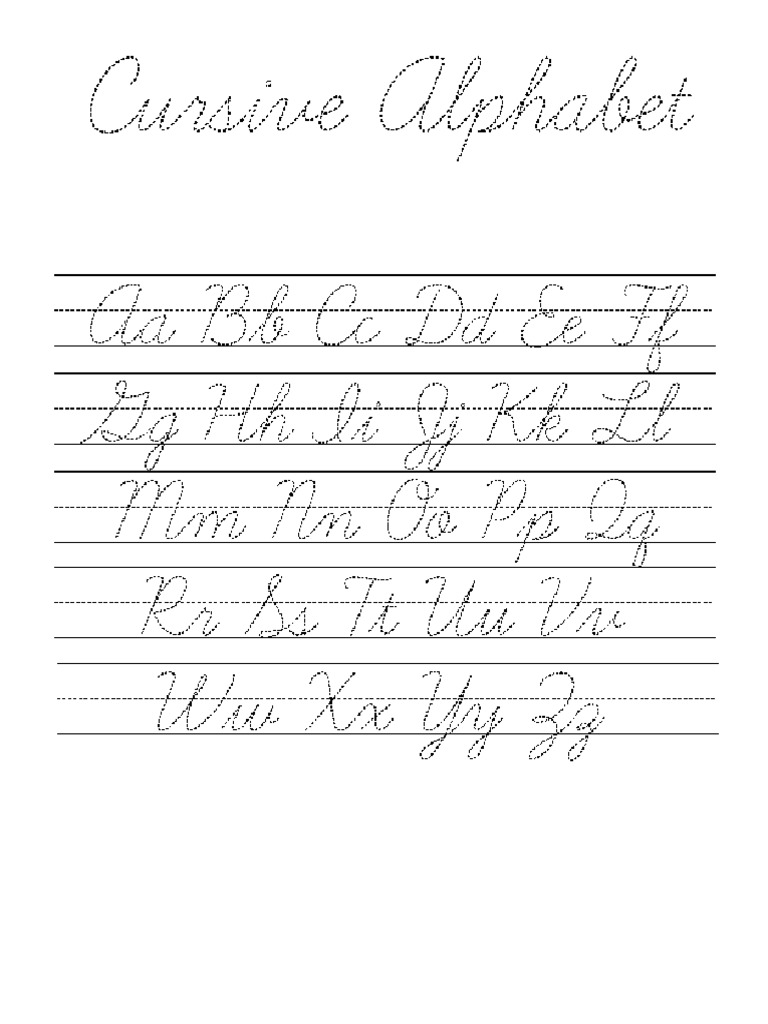 Cursive Alphabet
Aa Bb Cc Dd Ee Ff
Gg Hh Ii Jj Kk Ll
Mm Nn Oo Pp Qq
Rr Ss Tt Uu Vv
Ww Xx Yy Zz